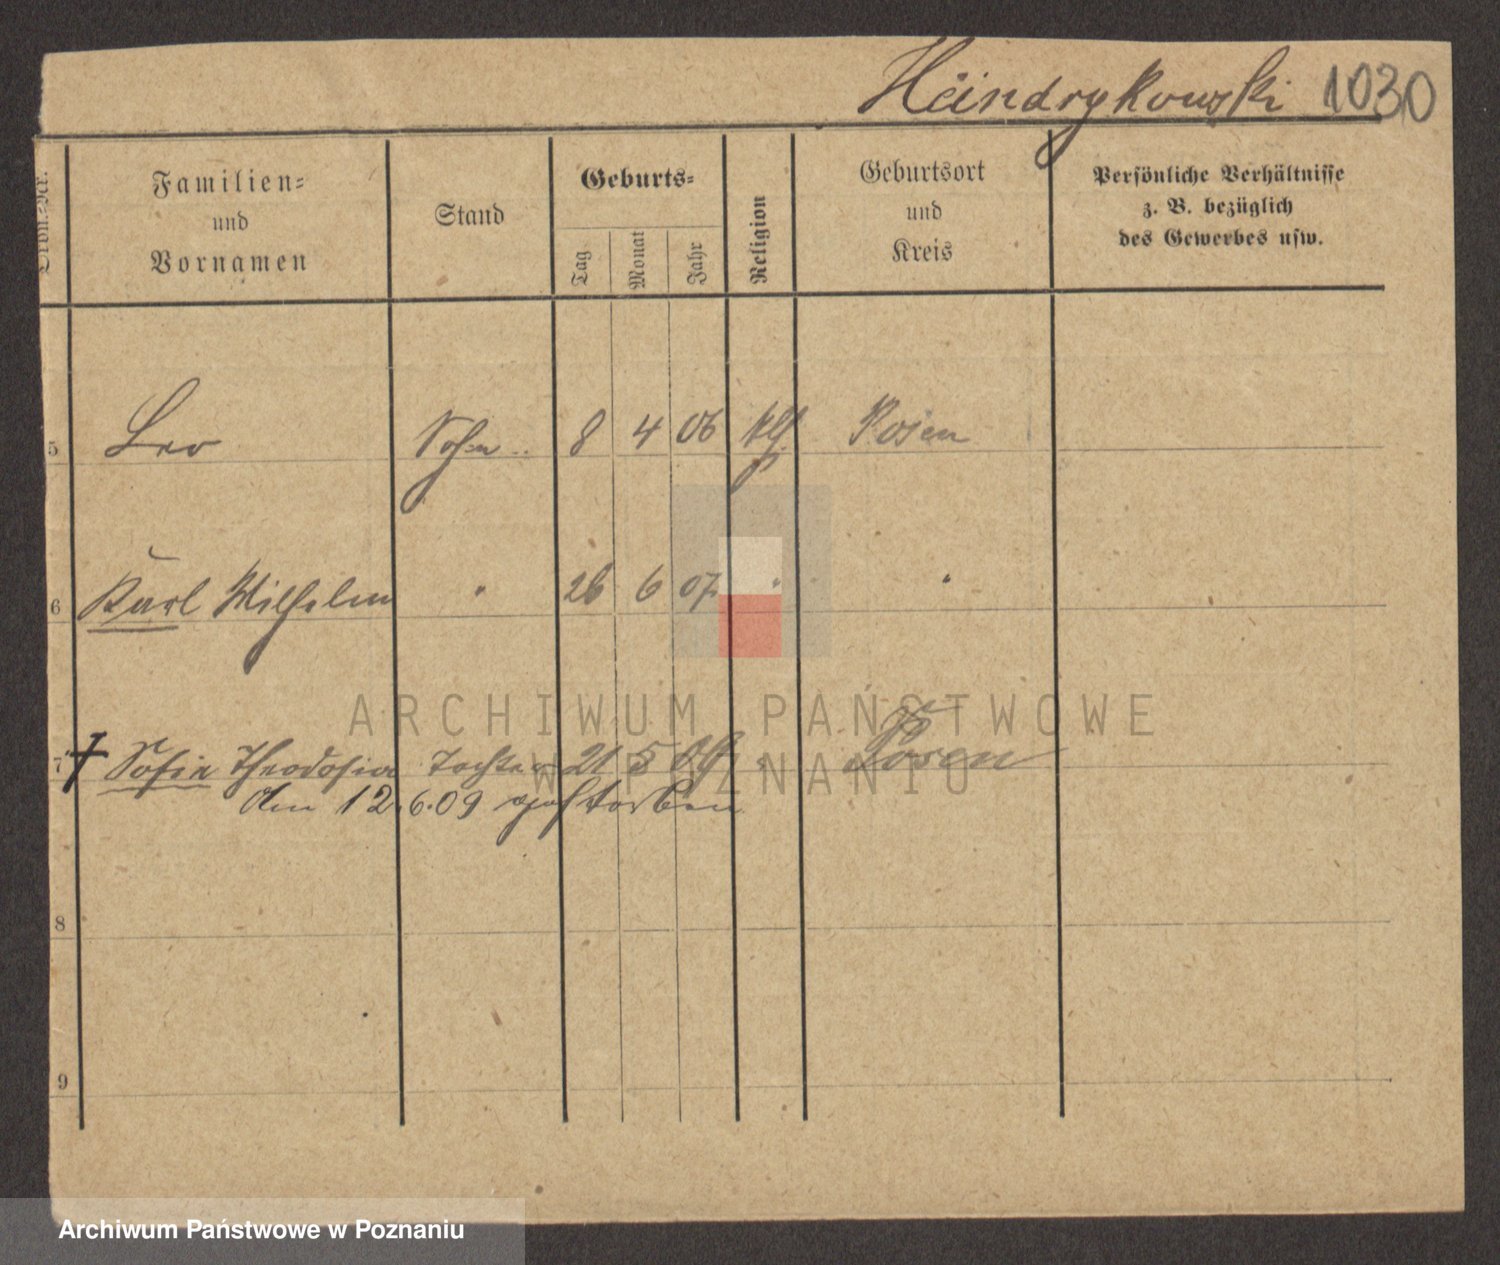 Heindrykowski 1030
Ordn.-Nr.
Familien-
und
Vornamen
Stand
Geburts-
Tag
Monat
Jahr
Religion
Geburtsort
und
Kreis
Persönliche Verhältnisse
z. B. bezüglich
des Gewerbes usw.
5 Leo Sohn 8 4 06 kth. Posen
6 Karl Wilhelm " 26 6 07 " "
7 † Sofie Theodosia Tochter 21 5 09 " Posen
Am 12.6.09 gestorben
8
9
ARCHIWUM PAŃSTWOWE
W POZNANIU
Archiwum Państwowe w Poznaniu